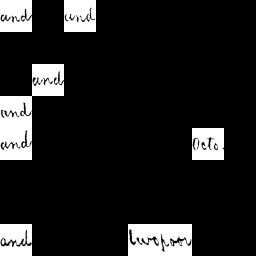 and and
and
and
and Octo.
and Liverpool